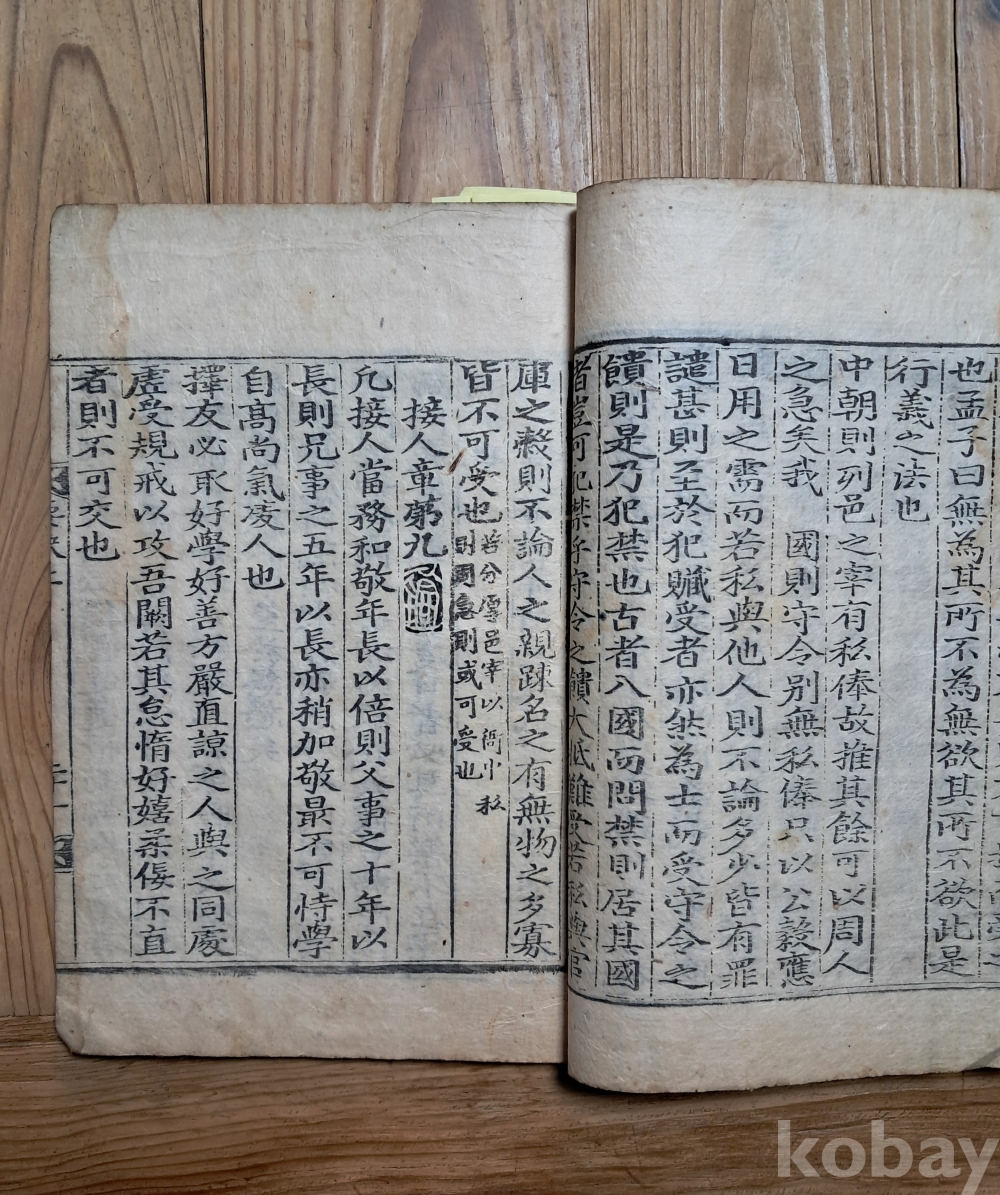 也孟子曰無為其所不為無欲其所不欲此是
行義之法也
中朝則列邑之宰有私俸故推其餘可以周人
之急矣我　國則守令别無私俸只以公穀應
日用之需而若私與他人則不論多少皆有罪
譴甚則至於犯贓受者亦然為士而受守令之
饋則是乃犯禁也古者入國而問禁則居其國
者豈可犯禁乎守令之饋大抵難受若私與官
庫之穀則不論人之親踈名之有無物之多寡
皆不可受也若分厚邑宰以衙中私
則周急則或可受也
接人章第九
凡接人當務和敬年長以倍則父事之十年以
長則兄事之五年以長亦稍加敬最不可恃學
自高尚氣凌人也
擇友必取好學好善方嚴直諒之人與之同處
虛受規戒以攻吾闕若其怠惰好嬉柔佞不直
者則不可交也
kobay